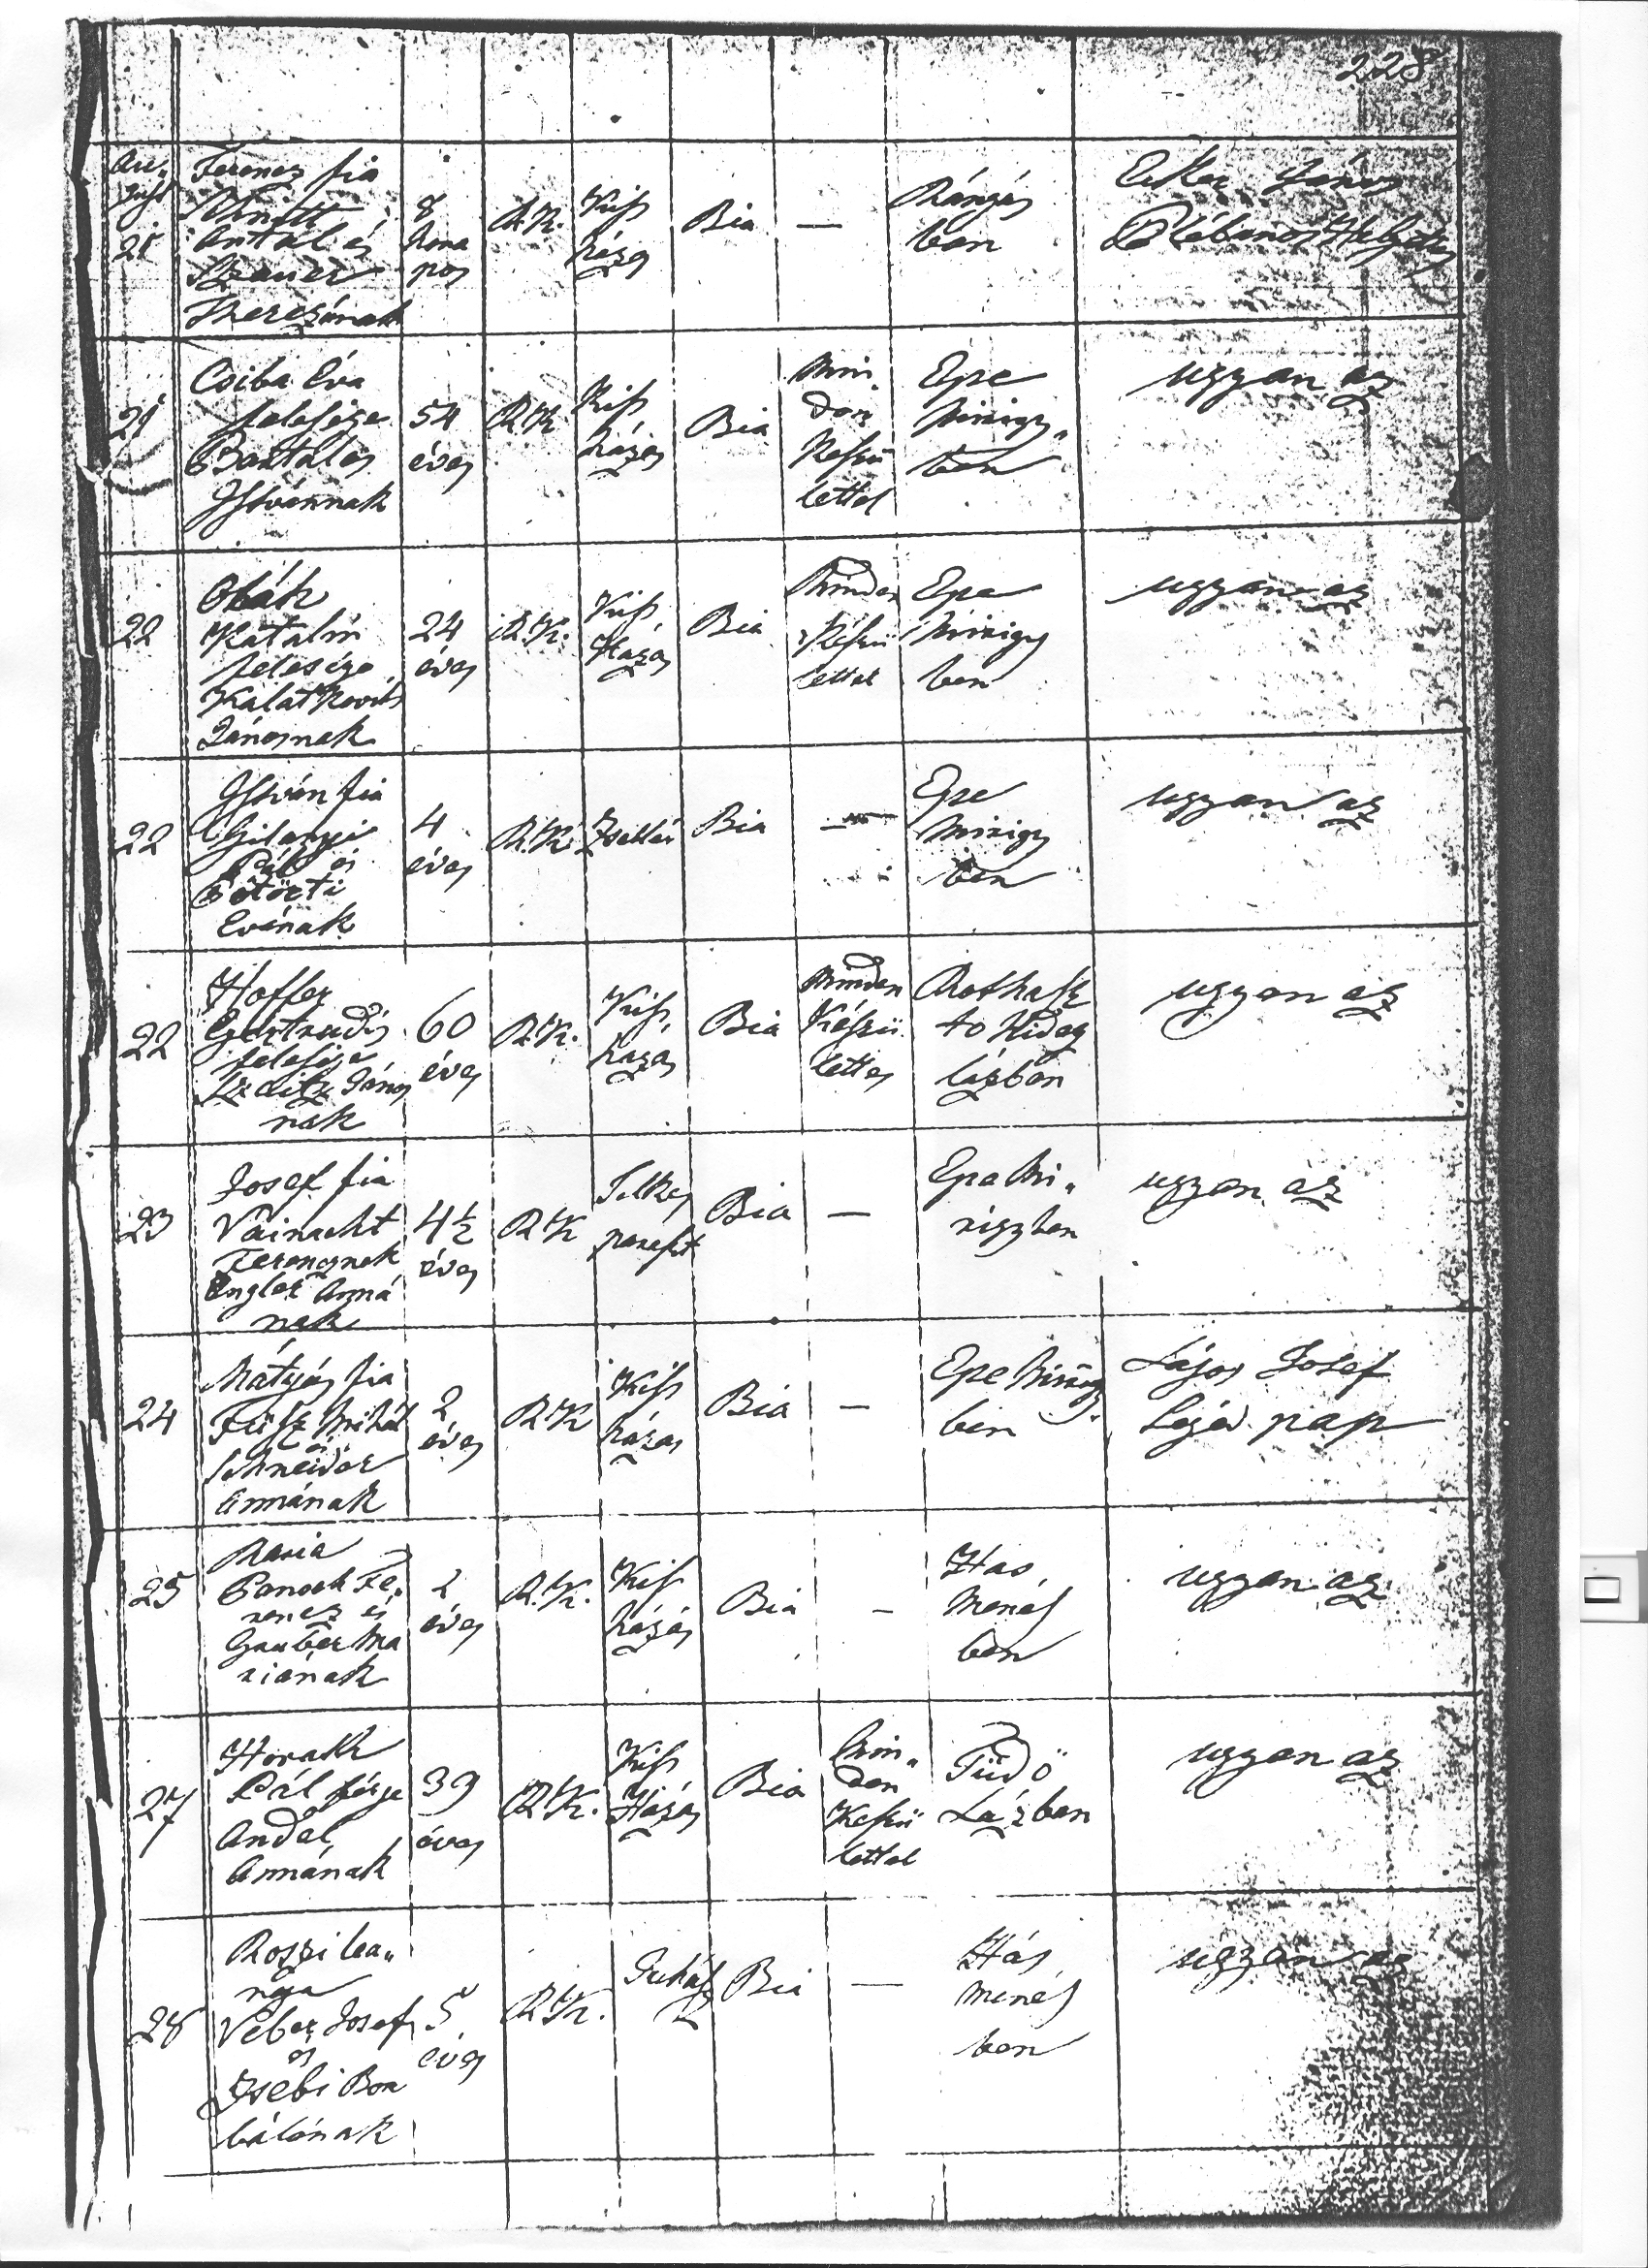 228
21
Ferencz fia
Schmitt
Antal és
Theresiának
8
hona
pos
R.K.
Kiss
házas
Bia
—
Rángás
ban
János
21
Csiba Éva
felesége
Bartalos
Istvánnak
54
éves
R.K.
Kiss
házas
Bia
Min
den
Keszü
lettel
Epe
mirigy„
ben
ugyan az
22
Oláh
Katalin
felesége
Jánosnak
24
éves
R.K.
Kiss
Házas
Bia
Minden
Készü
lettel
Epe
Mirigy
ben
ugyan az
22
István fia
Pál és
Evának
4
éves
R.K.
Zsellér
Bia
—
Epe
Mirigy
ben
ugyan az
22
Hoffer
Gertrudis
felesége
János
nak
60
éves
R.K.
Kiss
hazas
Bia
Minden
Készü
lettes
Rothasz
to Hideg
lázban
ugyan az
23
Josef fia
Vainacht
Ferencznek
Engler Anná
nak
4½
éves
R.K.
Telkes
paraszt
Bia
—
Epe Mi„
rigyben
ugyan az
24
Mátyás fia
Füsz Mihál
és
Schneider
Annának
2
éves
R.K.
Kiss
házas
Bia
—
Epe Mirigy
ben
Lajos Josef
Segéd pap
25
Maria
Fe„
rencz és
Gauber Ma
riának
2
éves
R.K.
Kiss
házás
Bia
-
Has
Menés
ben
ugyan az
27
Horath
Pál férje
Andel
Annának
39
éves
R.K.
Kiss
Házás
Bia
Min„
den
Keszü
lettel
Tüdő
Lázban
ugyan az
28
Roszi lea„
nya
Veber Josef
és
Zsebi Bor
bálának
5
éves
R.K.
Juhász
Bia
—
Hás
menés
ben
ugyan az